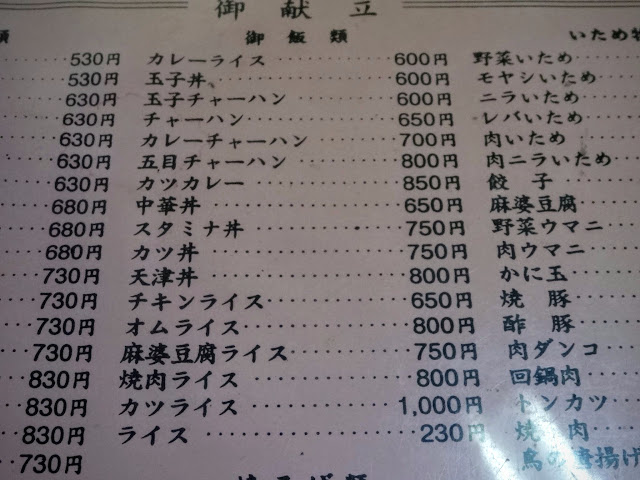 御献立
類 御飯類 いため物
530円 カレーライス 600円 野菜いため
530円 玉子丼 600円 モヤシいため
630円 玉子チャーハン 600円 ニラいため
630円 チャーハン 650円 レバいため
630円 カレーチャーハン 700円 肉いため
630円 五目チャーハン 800円 肉ニラいため
630円 カツカレー 850円 餃子
680円 中華丼 650円 麻婆豆腐
680円 スタミナ丼 750円 野菜ウマニ
680円 カツ丼 750円 肉ウマニ
730円 天津丼 800円 かに玉
730円 チキンライス 650円 焼豚
730円 オムライス 800円 酢豚
730円 麻婆豆腐ライス 750円 肉ダンコ
830円 焼肉ライス 800円 回鍋肉
830円 カツライス 1,000円 トンカツ
830円 ライス 230円 焼肉
730円 鳥の唐揚げ